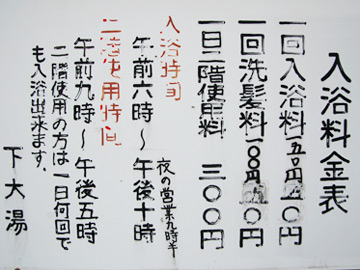 入浴料金表
一回入浴料
一回洗髪料一〇〇円
一日二階使用料 三〇〇円
入浴時間
午前六時~午後十時
夜の営業九時半
二階使用時間
午前九時~午後五時
二階使用の方は一日何回で
も入浴出来ます.
下大湯